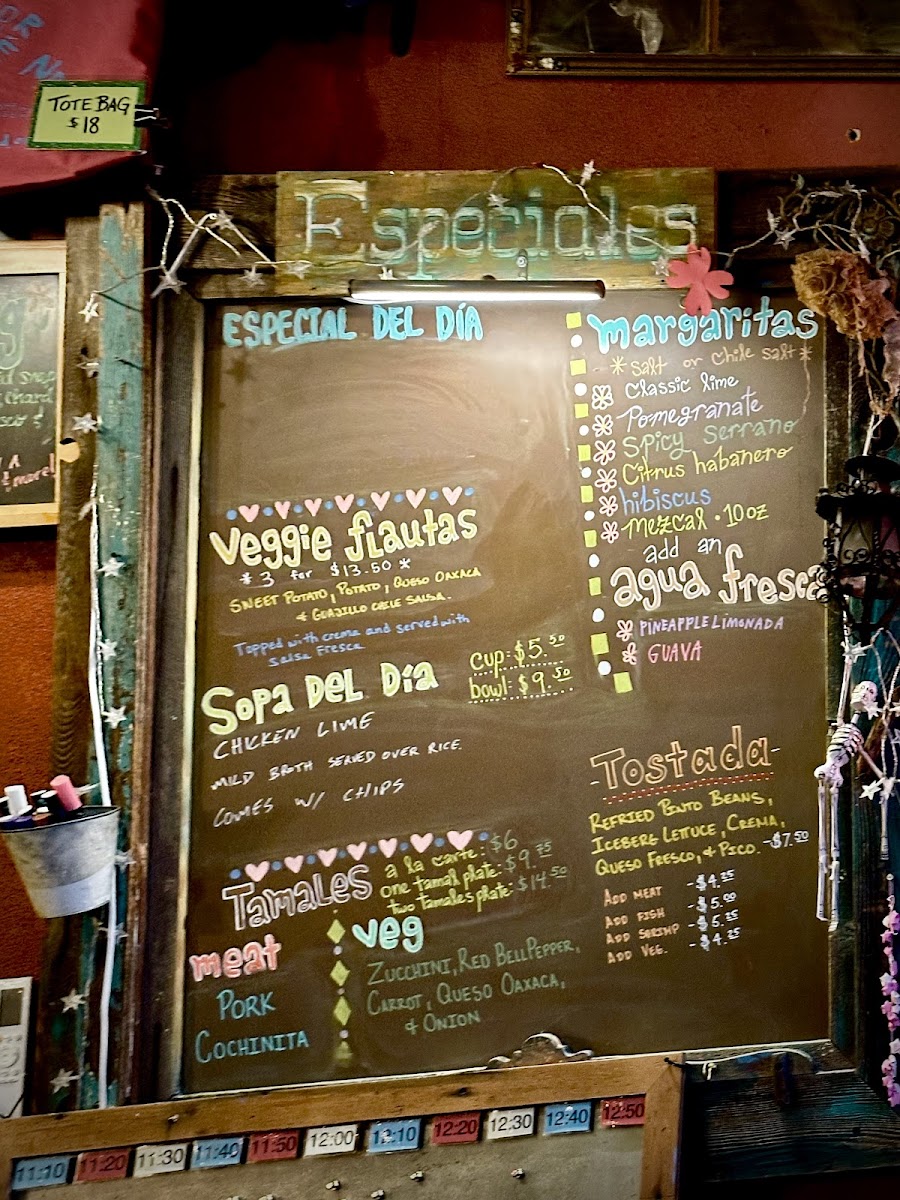 TOTE BAG
$18
Especiales
ESPECIAL DEL DÍA
Veggie flautas
*3 for $13.50*
SWEET POTATO, POTATO, QUESO OAXACA
& GUAJILLO CHILE SALSA.
Topped with crema and served with
salsa fresca
Sopa DEL Día
cup: $5.50
bowl: $9.50
CHICKEN LIME
MILD BROTH SERVED OVER RICE.
COMES W/ CHIPS
Tamales
a la carte: $6
one tamal plate: $9.75
two tamales plate: $14.50
meat
PORK
COCHINITA
veg
ZUCCHINI, RED BELL PEPPER,
CARROT, QUESO OAXACA,
& ONION
margaritas
*salt or chile salt*
Classic lime
Pomegranate
Spicy Serrano
Citrus habanero
hibiscus
Mezcal • 10oz
add an
agua fresca
PINEAPPLE LIMONADA
GUAVA
-Tostada-
REFRIED PINTO BEANS,
ICEBERG LETTUCE, CREMA,
QUESO FRESCO, & PICO. -$7.50
ADD MEAT -$4.25
ADD FISH -$5.00
ADD SHRIMP
ADD VEG. -$4.25
more!
11:10 11:20 11:30 11:40 11:50 12:00 12:10 12:20 12:30 12:40 12:50